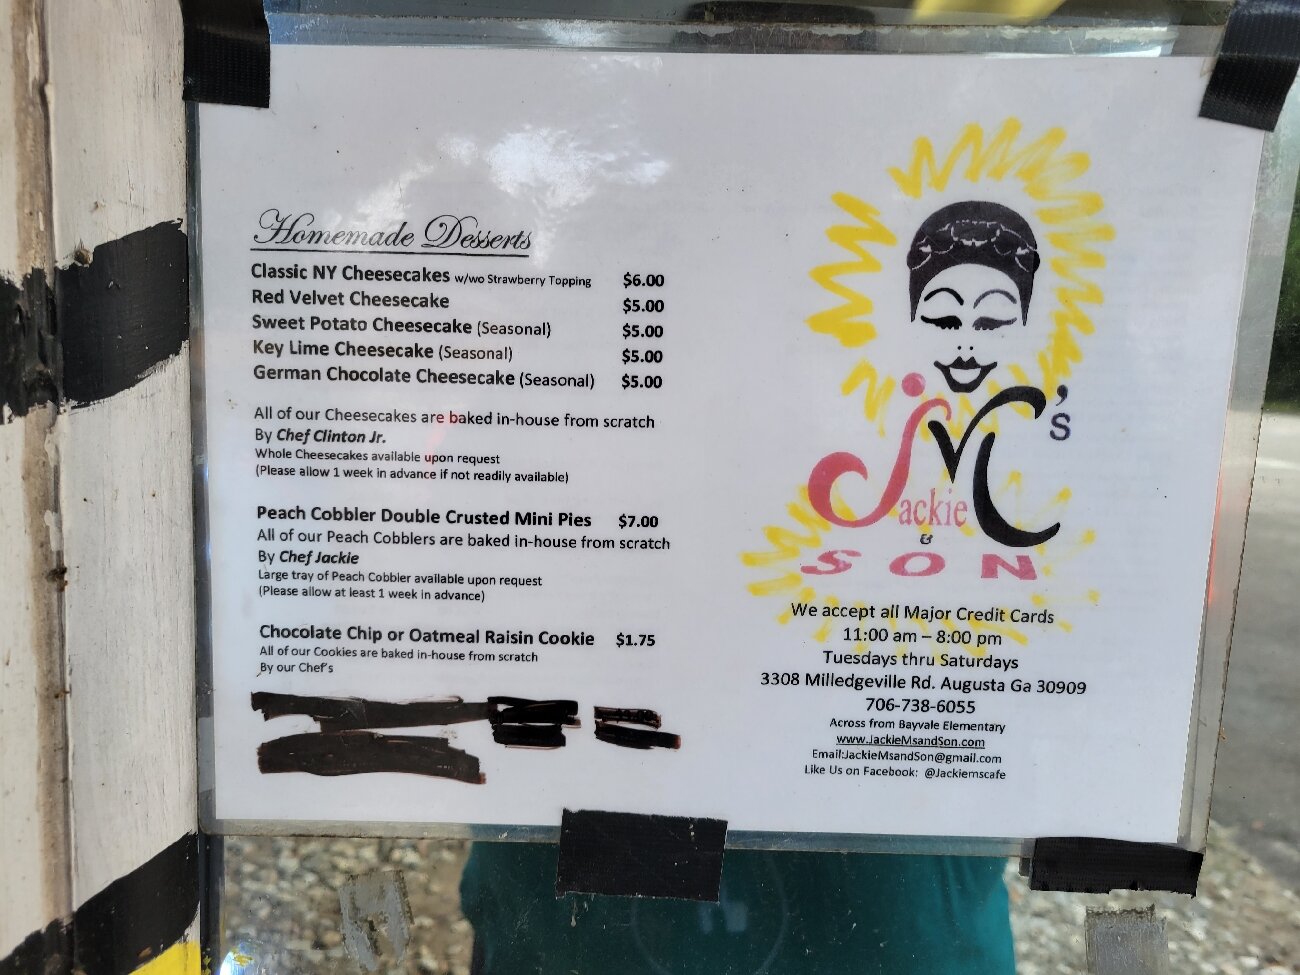 Homemade Desserts
Classic NY Cheesecakes w/wo Strawberry Topping $6.00
Red Velvet Cheesecake $5.00
Sweet Potato Cheesecake (Seasonal) $5.00
Key Lime Cheesecake (Seasonal) $5.00
German Chocolate Cheesecake (Seasonal) $5.00
All of our Cheesecakes are baked in-house from scratch
By Chef Clinton Jr.
Whole Cheesecakes available upon request
(Please allow 1 week in advance if not readily available)
Peach Cobbler Double Crusted Mini Pies $7.00
All of our Peach Cobblers are baked in-house from scratch
By Chef Jackie
Large tray of Peach Cobbler available upon request
(Please allow at least 1 week in advance)
Chocolate Chip or Oatmeal Raisin Cookie $1.75
All of our Cookies are baked in-house from scratch
By our Chef's
JMC's
Jackie
&
SON
We accept all Major Credit Cards
11:00 am – 8:00 pm
Tuesdays thru Saturdays
3308 Milledgeville Rd. Augusta Ga 30909
706-738-6055
Across from Bayvale Elementary
www.JackieMsandSon.com
Email:JackieMsandSon@gmail.com
Like Us on Facebook: @Jackiemscafe